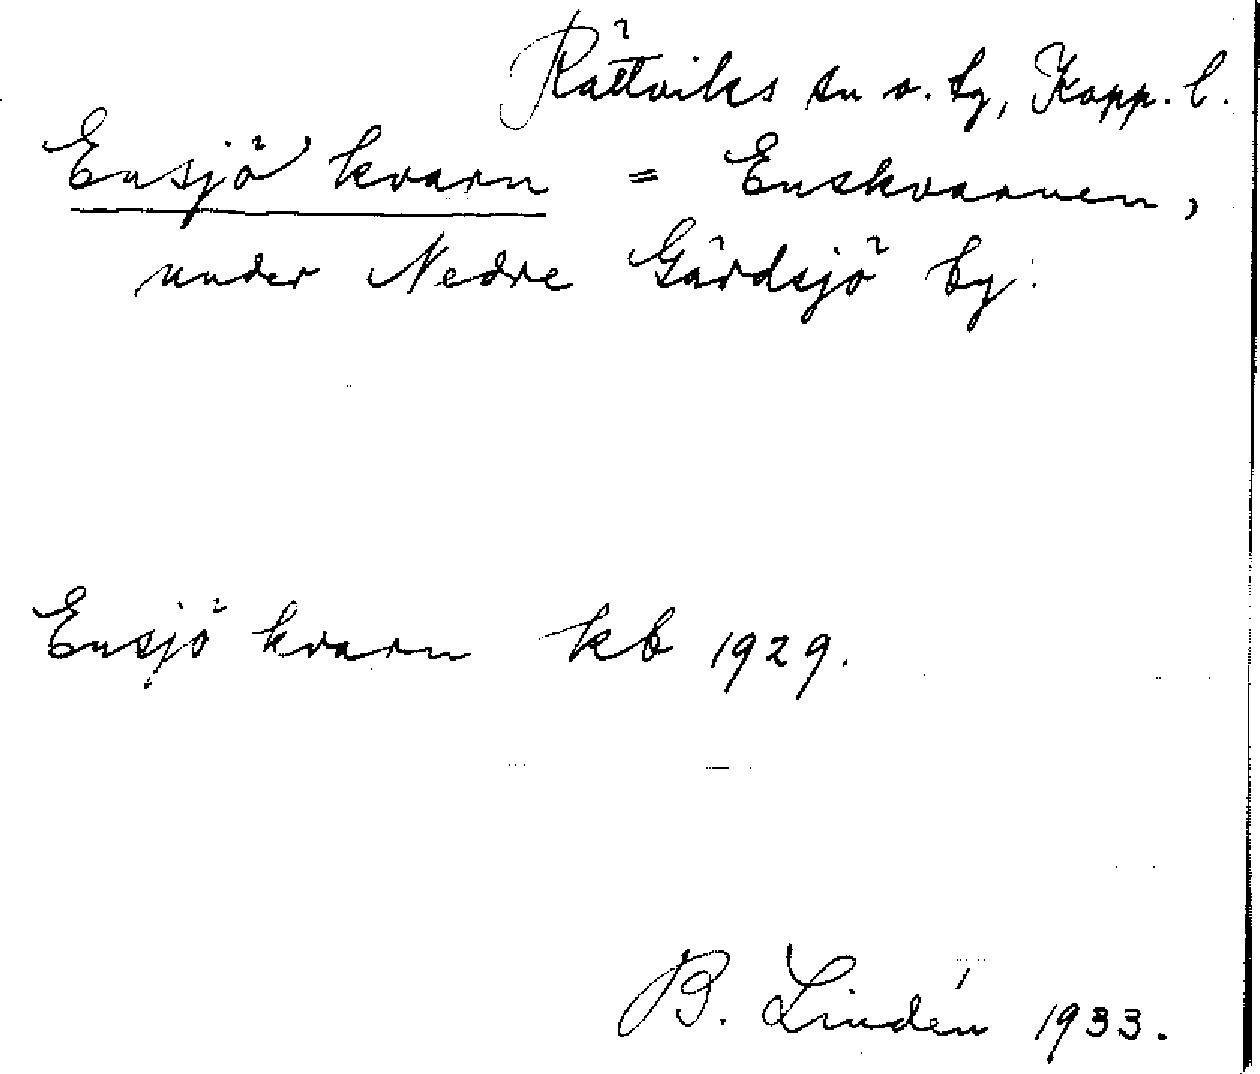 Rättviks sn o. tg, Kopp. l.
Ensjö kvarn = Enskvarnen,
under Nedre Gärdsjö by.
Ensjö kvarn kb 1929.
B. Lindén 1933.